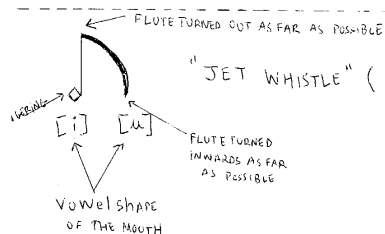 FLUTE TURNED OUT AS FAR AS POSSIBLE
"JET WHISTLE" (
[i] [u]
FLUTE TURNED
INWARDS AS FAR
AS POSSIBLE
Vowel shape
OF THE MOUTH